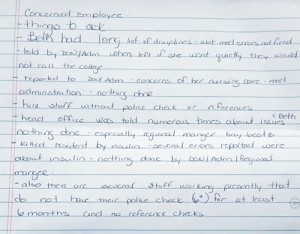 Concerned Employee
- things to ask
- Beth had long list of disciplines - alot med errors, not fired
- told by Don/Adm when left if she went quietly they would
not call the college
- reported to Don/Adm - concerns of her nursing care - med
administration - nothing done
- hire staff without police check or references
- head office was told numerous times about issues c Beth
nothing done - especially regional manager
- killed resident by insulin - several errors reported were
about insulin - nothing done by Don/Adm/Regional
manger
- also there are several staff working presently that
do not have their police check (6+) for at least
6 months and no reference checks